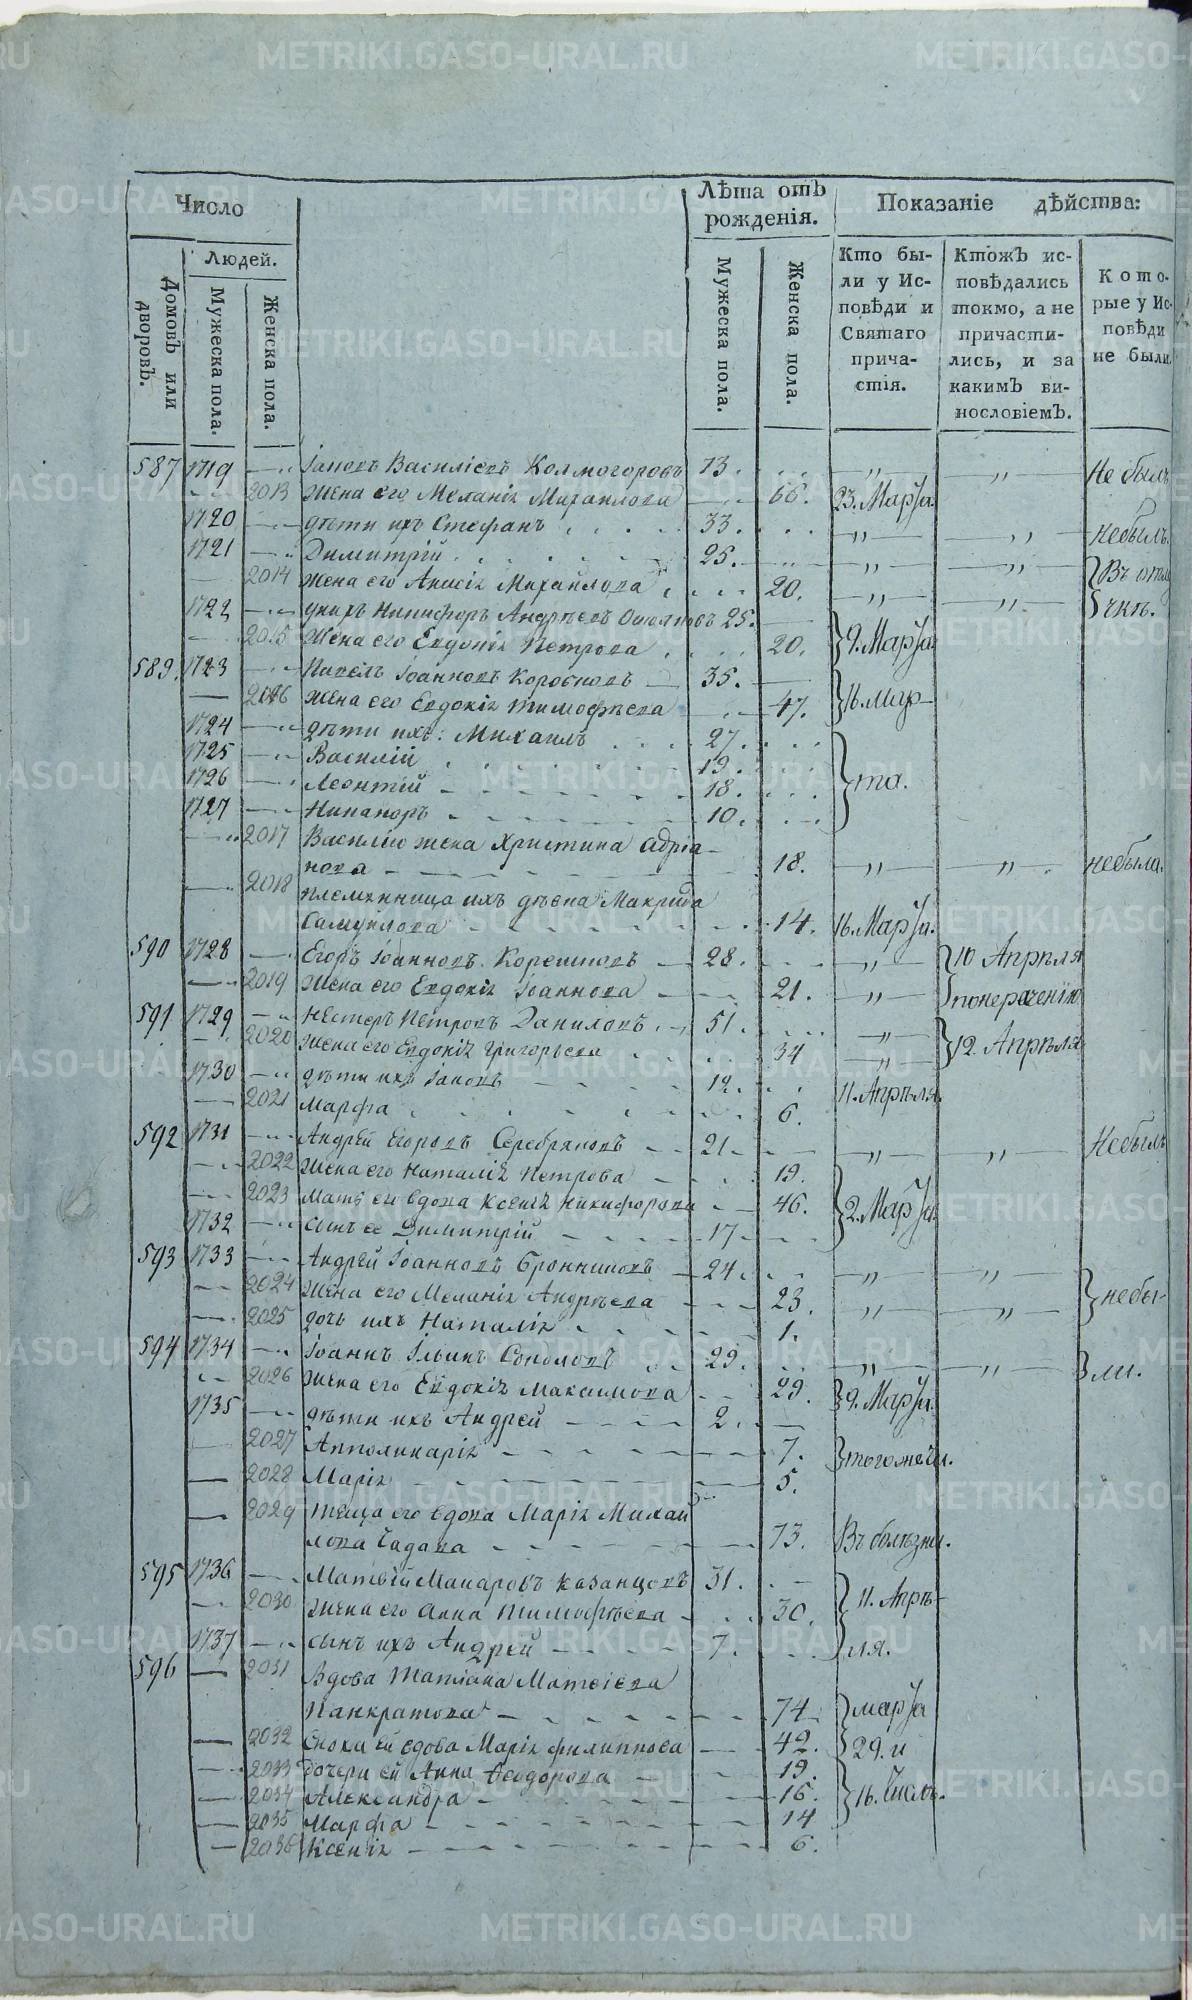 Число
Лѣта отъ рожденія.
Показаніе дѣйства:
Людей.
Домовъ или дворовъ.
Мужеска пола.
Женска пола.
Мужеска пола.
Женска пола.
Кто были у Исповѣди и Святаго причастія.
Ктожъ исповѣдались токмо, а не причастились, и за какимъ винословіемъ.
Которые у Исповѣди не были.
587 1719 Іаковъ Василіевъ Колмогоровъ 73. Не былъ
2013 Жена его Меланія Михаилова 66. 23. Марта.
1720 дѣти ихъ Стефанъ 33. небылъ.
1721 Димитрій 25.
2014 Жена его Анисія Михайлова 20.
1722 у нихъ Никифоръ Андрѣевъ 25.
2015 Жена его Евдокія Петрова 20. 9. Марта
589. 1723 Павелъ Іоанновъ 35.
2016 Жена его Евдокія Тимофѣева 47. 16. Мар-
1724 дѣти ихъ: Михаилъ 27.
1725 Василій 19.
1726 Леонтій 18. та.
1727 Никаноръ 10.
2017 Василію жена Христина Адріа-
нова 18. небыла.
2018 племянница ихъ дѣвка Макрида
Самуилова 14. 16. Марта.
590 1728 Егоръ Іоанновъ Корешковъ 28. 10 Апрѣля
2019 Жена его Евдокія Іоаннова 21. понераченію
591 1729 Нестеръ Петровъ Даниловъ 51.
2020 Жена его Евдокія Григорьева 34 12. Апрѣля
1730 дѣти ихъ Іаковъ 12.
2021 Марфа 6. 11. Апрѣля.
592 1731 Андрей Егоровъ Серебряковъ 21. Небылъ
2022 Жена его Наталія Петрова 19.
2023 Мать его вдова Ксенія Никифорова 46. 2. Марта.
1732 сынъ ее Димитрій 17.
593 1733 Андрей Іоанновъ Бронниковъ 24.
2024 Жена его Меланія Андрѣева 23. небы-
2025 дочь ихъ Наталія 1.
594 1734 Іоаннъ Ильинъ Соколовъ 29. ли.
2026 Жена его Евдокія Максимова 29. 9. Марта.
1735 дѣти ихъ Андрей 2.
2027 Апполинарія 7.
2028 Марія 5.
2029 теща его вдова Марія Михаи
лова 73. Въ болѣзни.
595 1736 Матвій Макаровъ Казанцовъ 31.
2030 Жена его Анна Тимофѣева 30. 11. Апрѣ-
1737 сынъ ихъ Андрей 7. ля.
596 2031 Вдова Татіана Матвіева
Панкратова 74. марта
2032 Сноха ей вдова Марія Филиппова 42. 29. и
2033 Дочери ей Анна Ѳеодорова 19.
2034 Александра 16. 16. числъ.
2035 Марфа 14
2036 Ксенія 6.
METRIKI.GASO-URAL.RU